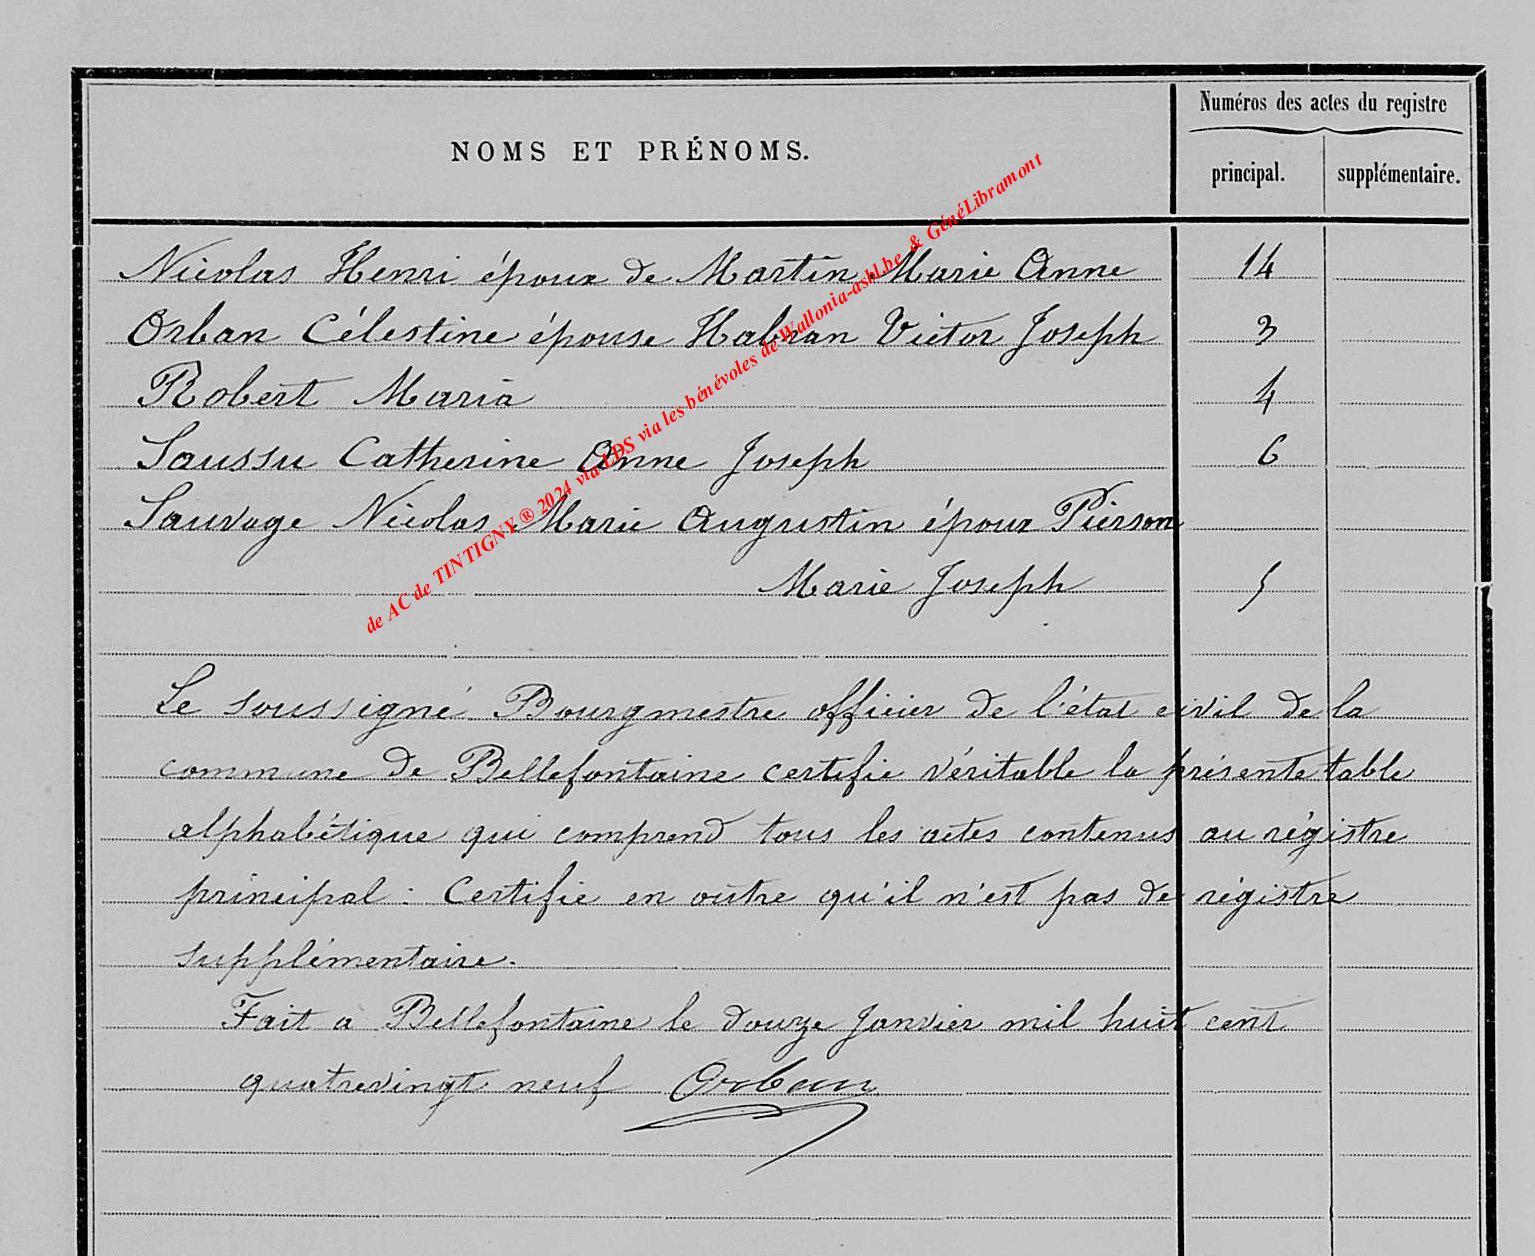 Numéros des actes du registre
NOMS ET PRÉNOMS.
principal. supplémentaire.
Nicolas Henri époux de Martin Marie Anne 14
Orban Célestine épouse Habran Victor Joseph 3
Robert Maria 4
Saussu Catherine Anne Joseph 6
Sauvage Nicolas Marie Augustin époux Pierson
Marie Joseph 5
Le soussigné Bourgmestre officier de l'état civil de la
commune de Bellefontaine certifie véritable la présente table
alphabétique qui comprend tous les actes contenus au régistre
principal : Certifie en outre qu'il n'est pas de régistre
supplémentaire.
Fait a Bellefontaine le douze Janvier mil huit cent
quatrevingt neuf Orban
de AC de TINTIGNY ® 2024 via LDS via les bénévoles de Wallonia-asbl.be & GénéLibramont